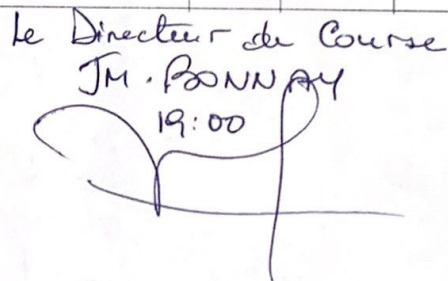 Le Directeur de Course
JM. BONNAY
19:00